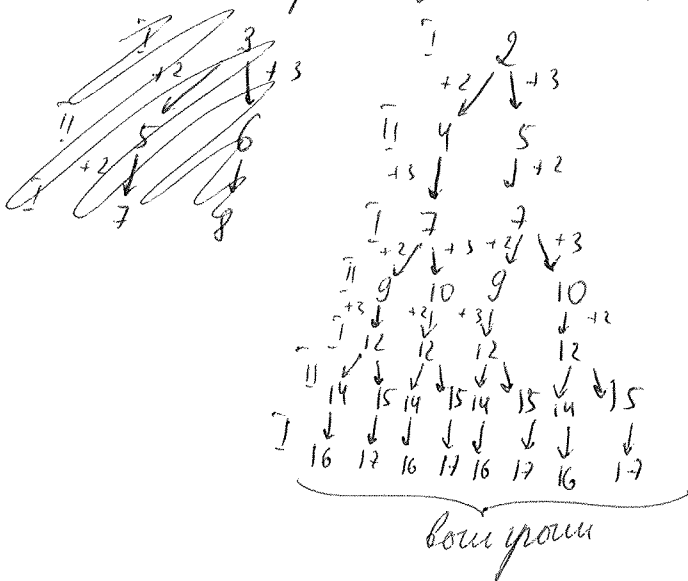 I 3 I 2
+2 +3 +2 +3
II 5 6 II 4 5
+2 +3 +2
I 7 8 I 7 7
+2 +3 +2 +3
II 9 10 9 10
+3 +2 +3 +2
I 12 12 12 12
II 14 15 14 15 14 15 14 15
I 16 17 16 17 16 17 16 17